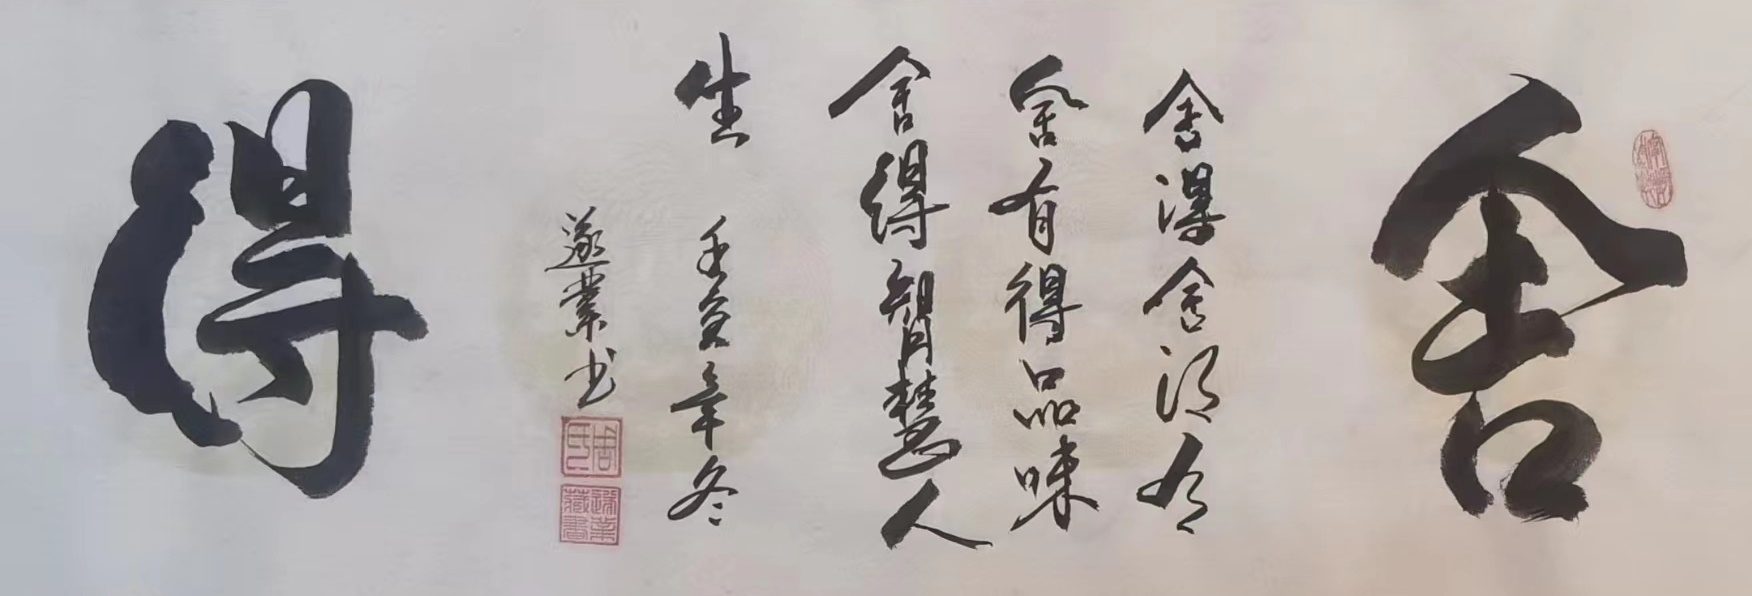 舍
舍得舍得有
舍有得品味
舍得智慧人
生 壬寅年冬
遂業书
周氏
遂業藏書
得